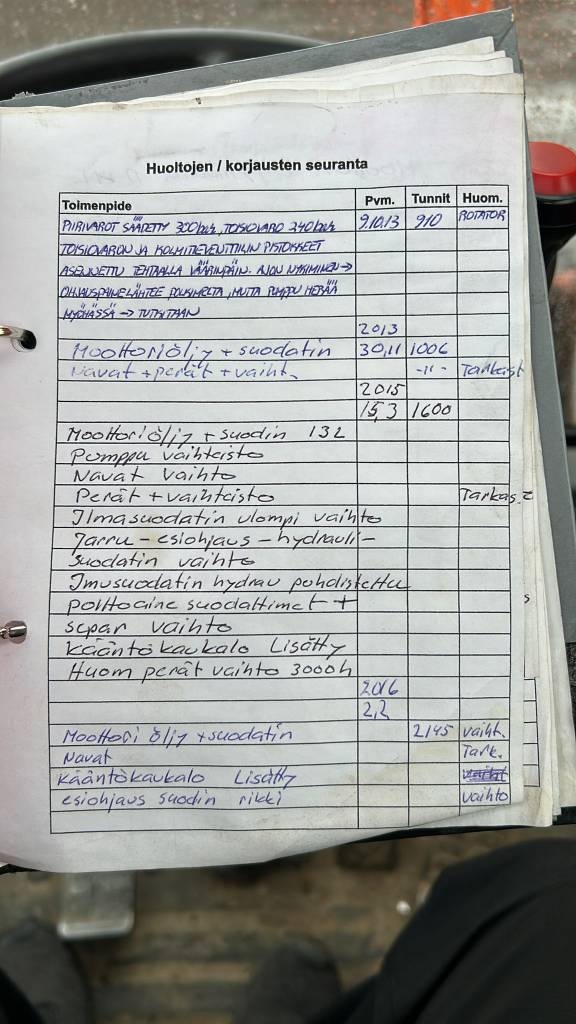 Huoltojen / korjausten seuranta
Toimenpide Pvm. Tunnit Huom.
PIIRIVAROT SÄÄDETTY 300bar, TOISIOVARO 240bar 9.10.13 910 ROTATOR
TOISIOVARON JA KOLMITIEVENTTIILIN PISTOKKEET
ASENNETTU TEHTAALLA VÄÄRINPÄIN. AJON NYKIMINEN →
OHJAUSPAINE LÄHTEE POLKIMELTA, MUTTA PUMPPU HERÄÄ
MYÖHÄSSÄ → TUTKITAAN
2013
Moottoriöljy + suodatin 30,11 1006
Navat + perät + vaiht. -11- Tarkast
2015
15,3 1600
Moottoriöljy + suodin 13L
Pumppu vaihteisto
Navat vaihto
Perät + vaihteisto Tarkast
Ilmasuodatin ulompi vaihto
Jarru - esiohjaus - hydrauli-
suodatin vaihto
Imusuodatin hydrau puhdistettu
polttoaine suodattimet +
separ vaihto
Kääntökaukalo Lisätty
Huom perät vaihto 3000h
2016
2,2
Moottori öljy + suodatin 2145 vaiht.
Navat Tark.
Kääntökaukalo Lisätty
esiohjaus suodin rikki vaihto